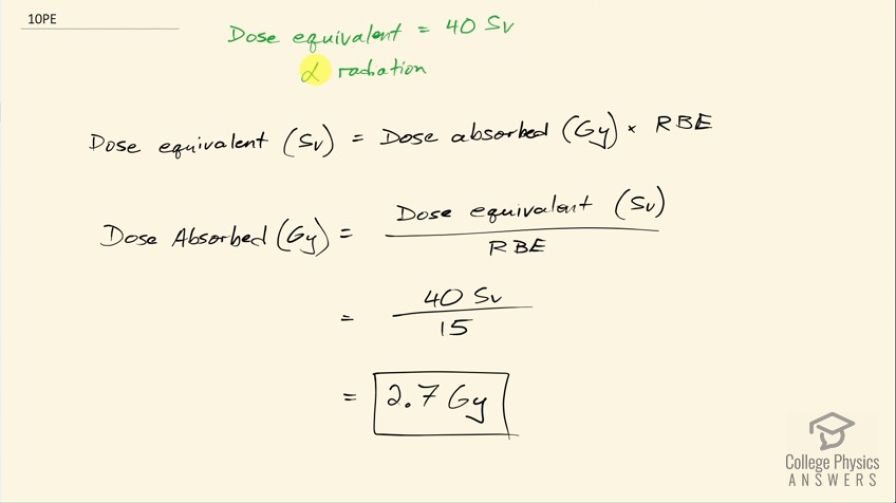 10PE
Dose equivalent = 40 Sv
α radiation
Dose equivalent (Sv) = Dose absorbed (Gy) × RBE
Dose Absorbed (Gy) = Dose equivalent (Sv)
RBE
= 40 Sv
15
= 2.7 Gy
College Physics
ANSWERS